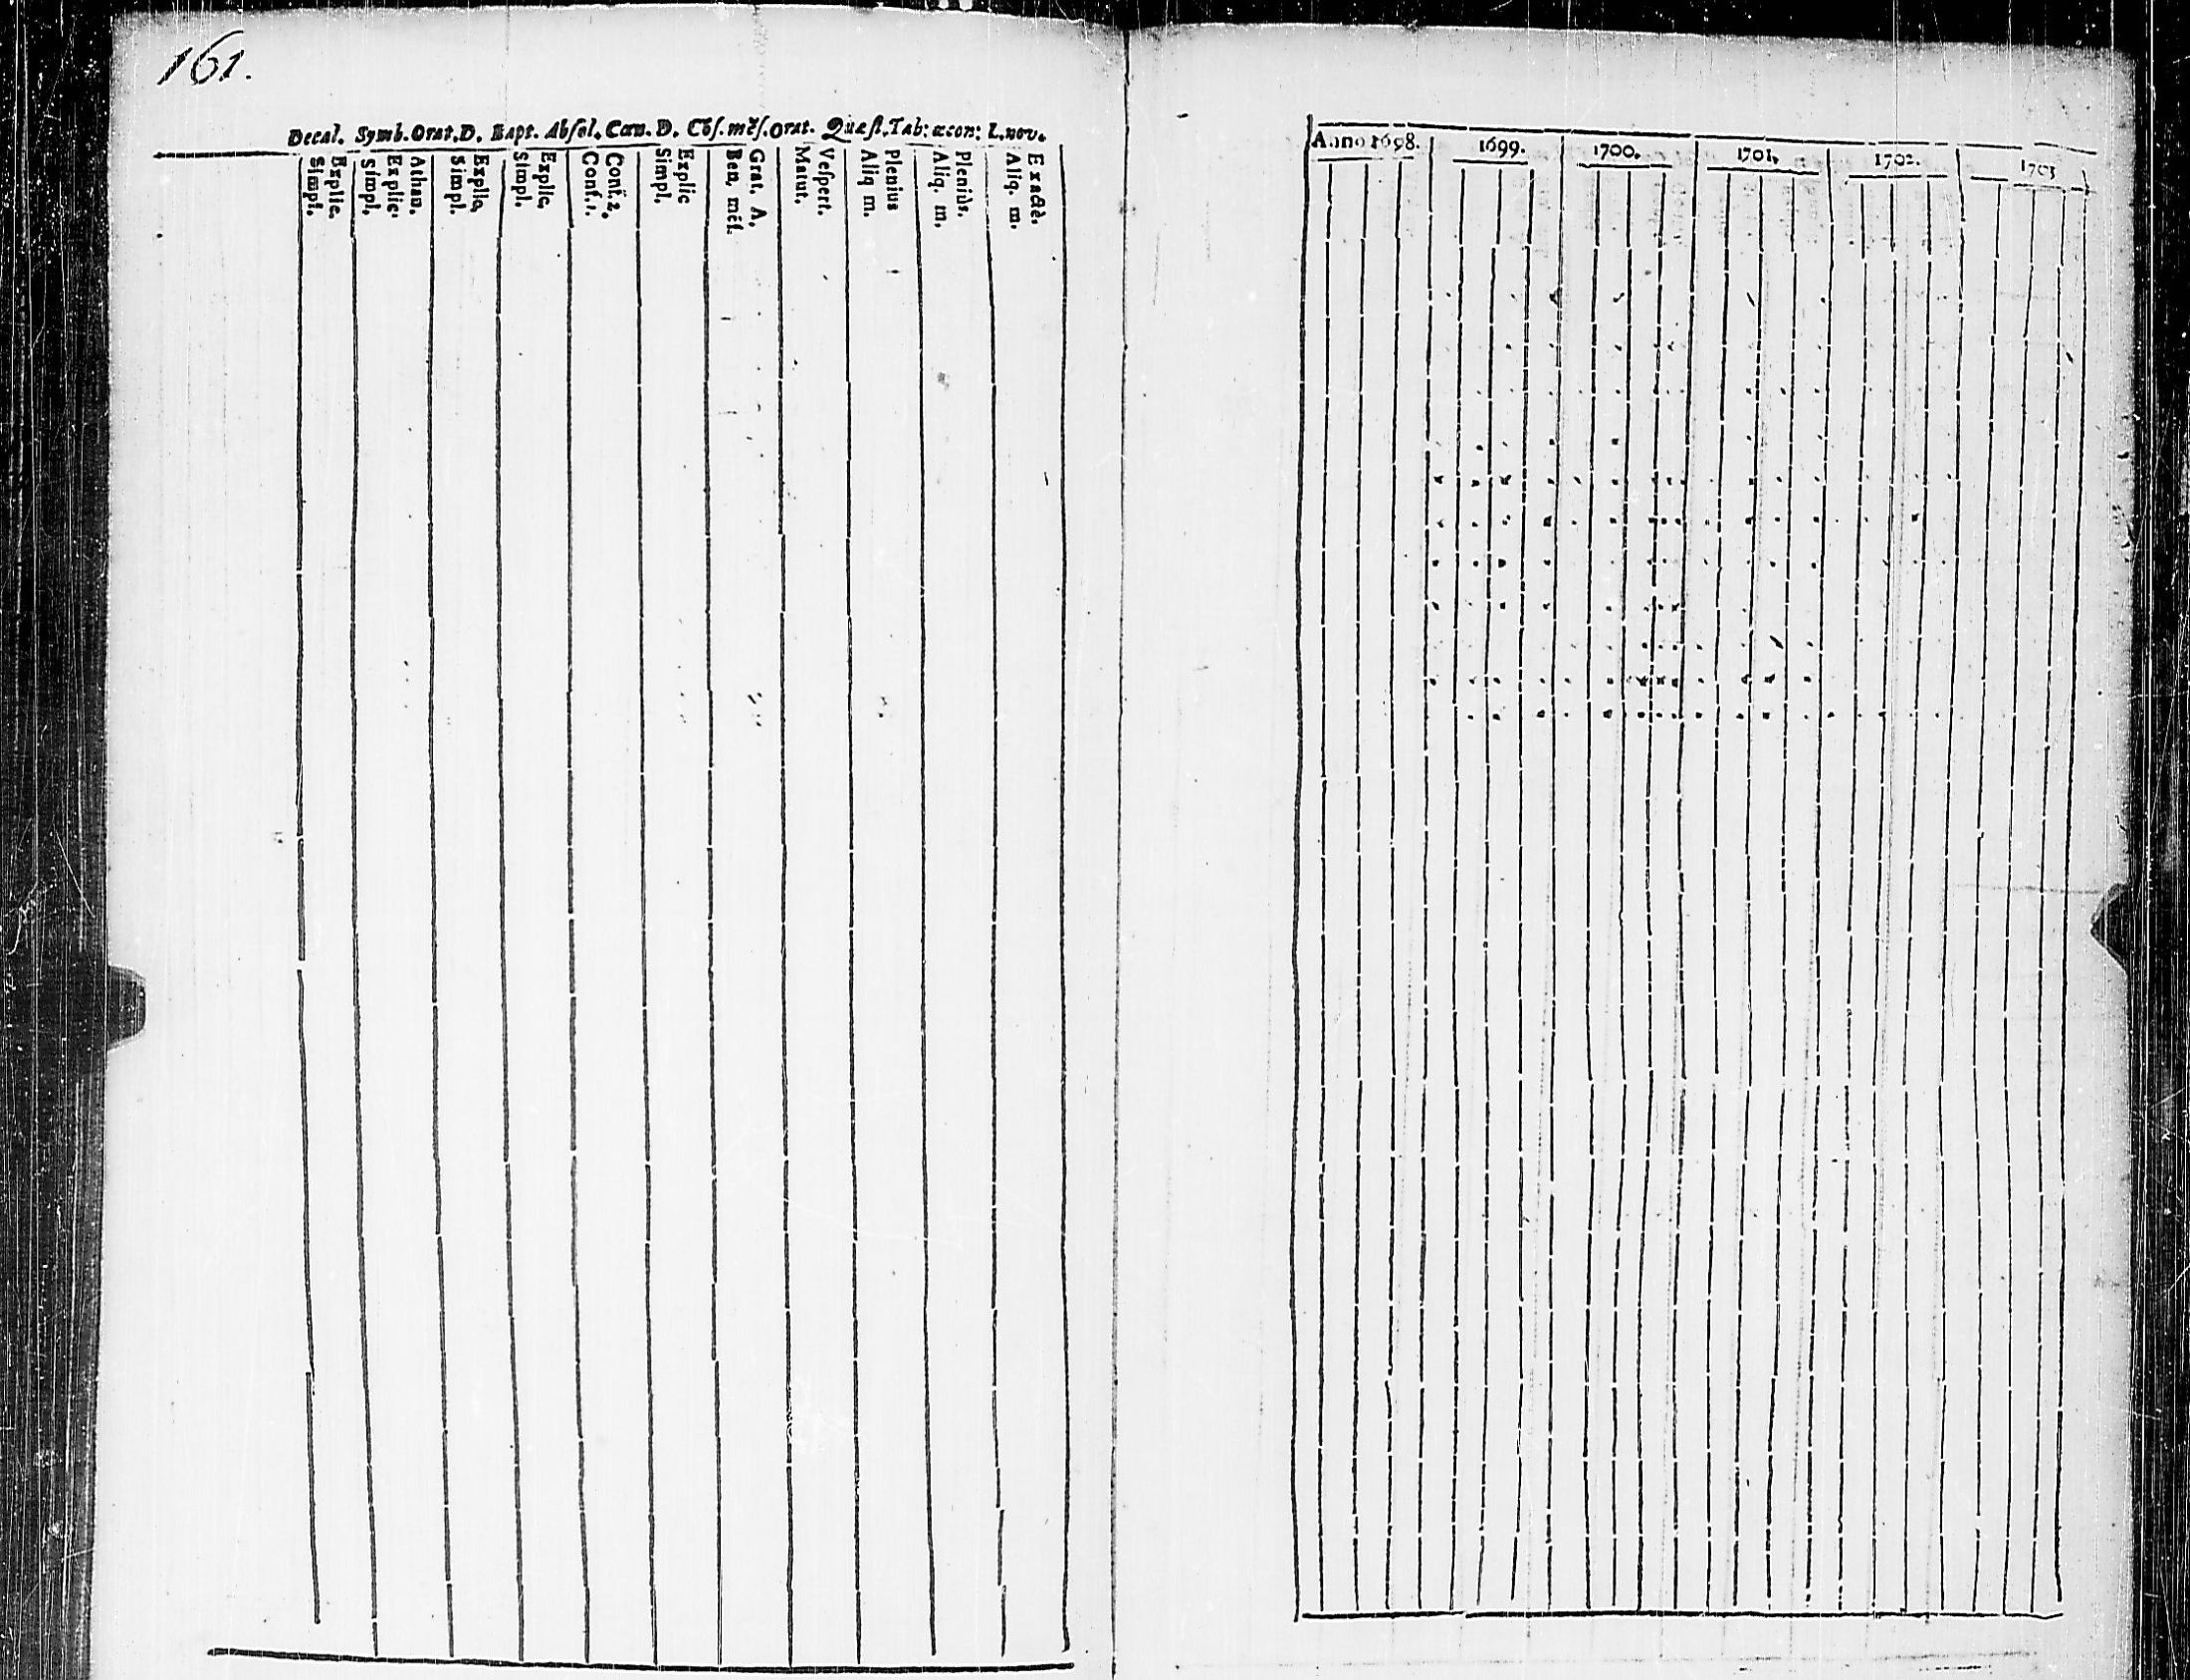 161.
Decal. Symb. Orat. D. Bapt. Absol. Cœn. D. Cōſ. mēſ. Orat. Quæſt. Tab: œcon: L. nov.
Explic.
Simpl.
Athan.
Explic:
Simpl.
Explic.
Simpl.
Explic.
Simpl.
Conf. 2.
Conf. 1.
Explic
Simpl.
Grat. A.
Ben. mēſ.
Veſpert.
Matut.
Plenius
Aliq m.
Pleniùs.
Aliq. m.
Exactè.
Aliq. m.
Anno 1698. 1699. 1700. 1701. 1702. 1703